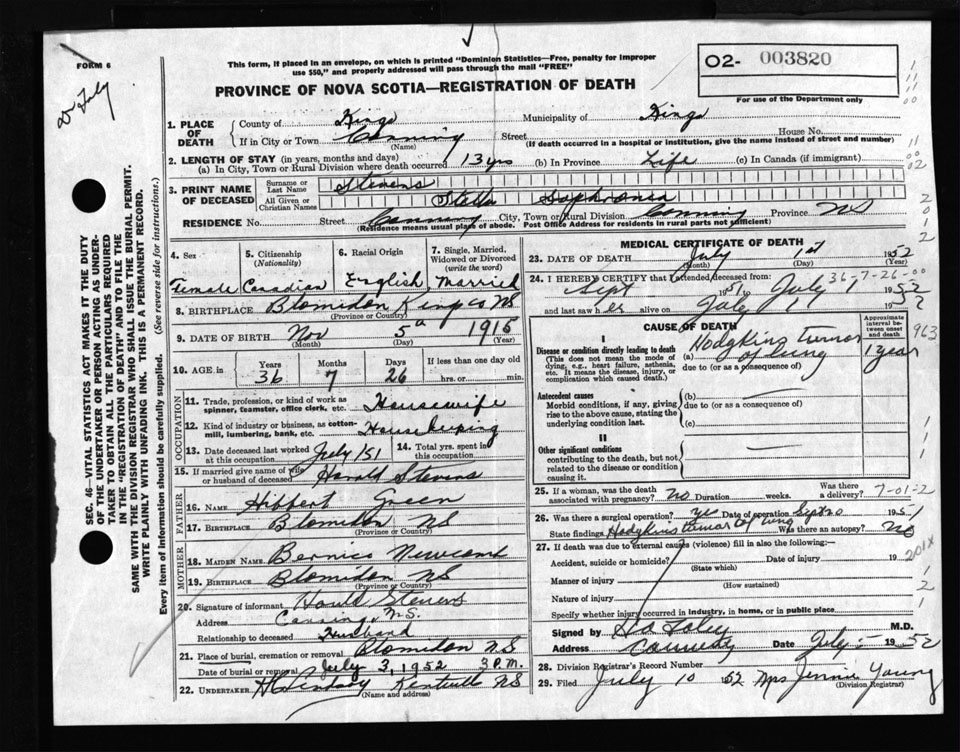 FORM 6
D July
This form, if placed in an envelope, on which is printed "Dominion Statistics—Free, penalty for improper
use $50," and properly addressed will pass through the mail "FREE"
PROVINCE OF NOVA SCOTIA—REGISTRATION OF DEATH
O2- 003820
For use of the Department only
1. PLACE OF DEATH
County of Kings Municipality of Kings
If in City or Town Canning Street House No.
(Name) (If death occurred in a hospital or institution, give the name instead of street and number)
2. LENGTH OF STAY (in years, months and days)
(a) In City, Town or Rural Division where death occurred 13 yrs (b) In Province Life (c) In Canada (if immigrant)
3. PRINT NAME OF DECEASED
Surname or Last Name Stevens
All Given or Christian Names Stella Sophronia
RESIDENCE No. Street Canning City, Town or Rural Division Canning Province NS
(Residence means usual place of abode. Post Office Address for residents in rural parts not sufficient)
4. Sex Female
5. Citizenship (Nationality) Canadian
6. Racial Origin English
7. Single, Married, Widowed or Divorced (write the word) Married
8. BIRTHPLACE Blomidon Kings Co NS
(Province or Country)
9. DATE OF BIRTH Nov 5th 1915
(Month) (Day) (Year)
10. AGE in Years 36 Months 7 Days 26 If less than one day old hrs. or min.
OCCUPATION
11. Trade, profession, or kind of work as spinner, teamster, office clerk, etc. Housewife
12. Kind of industry or business, as cotton-mill, lumbering, bank, etc. Housekeeping
13. Date deceased last worked at this occupation July 151
14. Total yrs. spent in this occupation
15. If married give name of wife or husband of deceased Harold Stevens
FATHER
16. NAME Hibbert Green
17. BIRTHPLACE Blomidon NS
(Province or Country)
MOTHER
18. MAIDEN NAME Bernice Newcomb
19. BIRTHPLACE Blomidon NS
(Province or Country)
20. Signature of informant Harold Stevens
Address Canning N.S.
Relationship to deceased Husband
21. Place of burial, cremation or removal Blomidon NS
Date of burial or removal July 3, 1952 3 P.M.
22. UNDERTAKER H Lindsay Kentville NS
(Name and address)
MEDICAL CERTIFICATE OF DEATH
23. DATE OF DEATH July 1st 1952
(Month) (Day) (Year)
24. I HEREBY CERTIFY that I attended deceased from
36-7-26-00
Sept 1951 to July 1 1952
and last saw her alive on July 1 1952
CAUSE OF DEATH
Approximate interval between onset and death
I
Disease or condition directly leading to death
(This does not mean the mode of dying, e.g., heart failure, asthenia, etc. It means the disease, injury, or complication which caused death.)
(a) Hodgkins tumor of lung 1 year
due to (or as a consequence of)
963
Antecedent causes
Morbid conditions, if any, giving rise to the above cause, stating the underlying condition last.
(b)
due to (or as a consequence of)
(c)
II
Other significant conditions
contributing to the death, but not related to the disease or condition causing it.
25. If a woman, was the death associated with pregnancy? No Duration weeks. Was there a delivery? 7-01-2
26. Was there a surgical operation? yes Date of operation 1951
State findings Hodgkins tumor of lung Was there an autopsy? No
27. If death was due to external causes (violence) fill in also the following:—
Accident, suicide or homicide? Date of injury 19
(State which)
201X
Manner of injury
(How sustained)
Nature of injury
Specify whether injury occurred in industry, in home, or in public place
Signed by M.D.
Address Date July 1952
28. Division Registrar's Record Number
29. Filed July 10 1952 Mrs Jennie Young
(Division Registrar)
SEC. 46—VITAL STATISTICS ACT MAKES IT THE DUTY
OF THE UNDERTAKER OR PERSON ACTING AS UNDER-
TAKER TO OBTAIN ALL THE PARTICULARS REQUIRED
IN THE "REGISTRATION OF DEATH" AND TO FILE THE
SAME WITH THE DIVISION REGISTRAR WHO SHALL ISSUE THE BURIAL PERMIT.
WRITE PLAINLY WITH UNFADING INK. THIS IS A PERMANENT RECORD.
Every item of information should be carefully supplied. (See reverse side for instructions.)